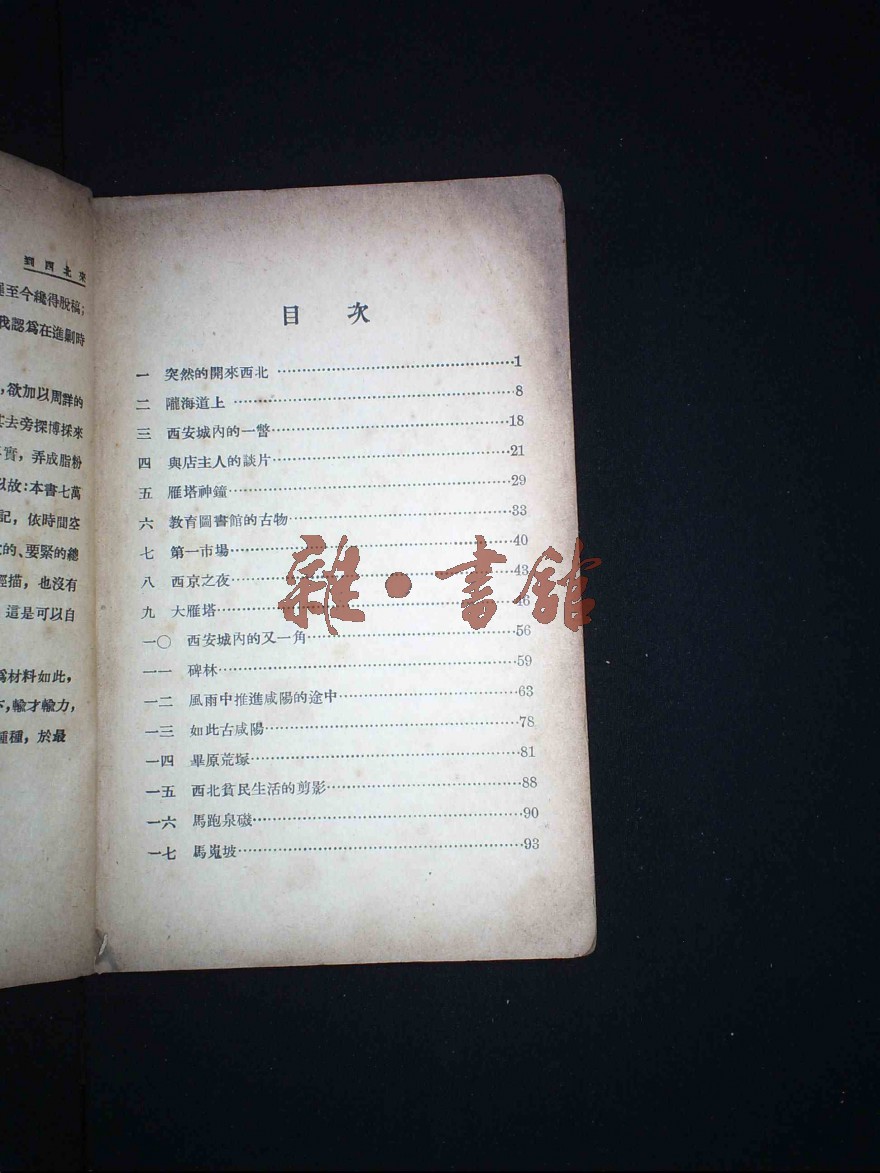 到西北來
至今纔得脫稿；
我認爲在進剿時
，欲加以周詳的
去旁探博採來
實，弄成脂粉
以故：本書七萬
記，依時間空
的、要緊的總
描，也沒有
這是可以自
爲材料如此，
下，輸才輸力，
種種，於最
目 次
一 突然的開來西北……1
二 隴海道上……8
三 西安城內的一瞥……18
四 與店主人的談片……21
五 雁塔神鐘……29
六 教育圖書館的古物……33
七 第一市場……40
八 西京之夜……43
九 大雁塔……46
一〇 西安城內的又一角……56
一一 碑林……59
一二 風雨中推進咸陽的途中……63
一三 如此古咸陽……78
一四 畢原荒塚……81
一五 西北貧民生活的剪影……88
一六 馬跑泉磁……90
一七 馬嵬坡……93
雜·書館